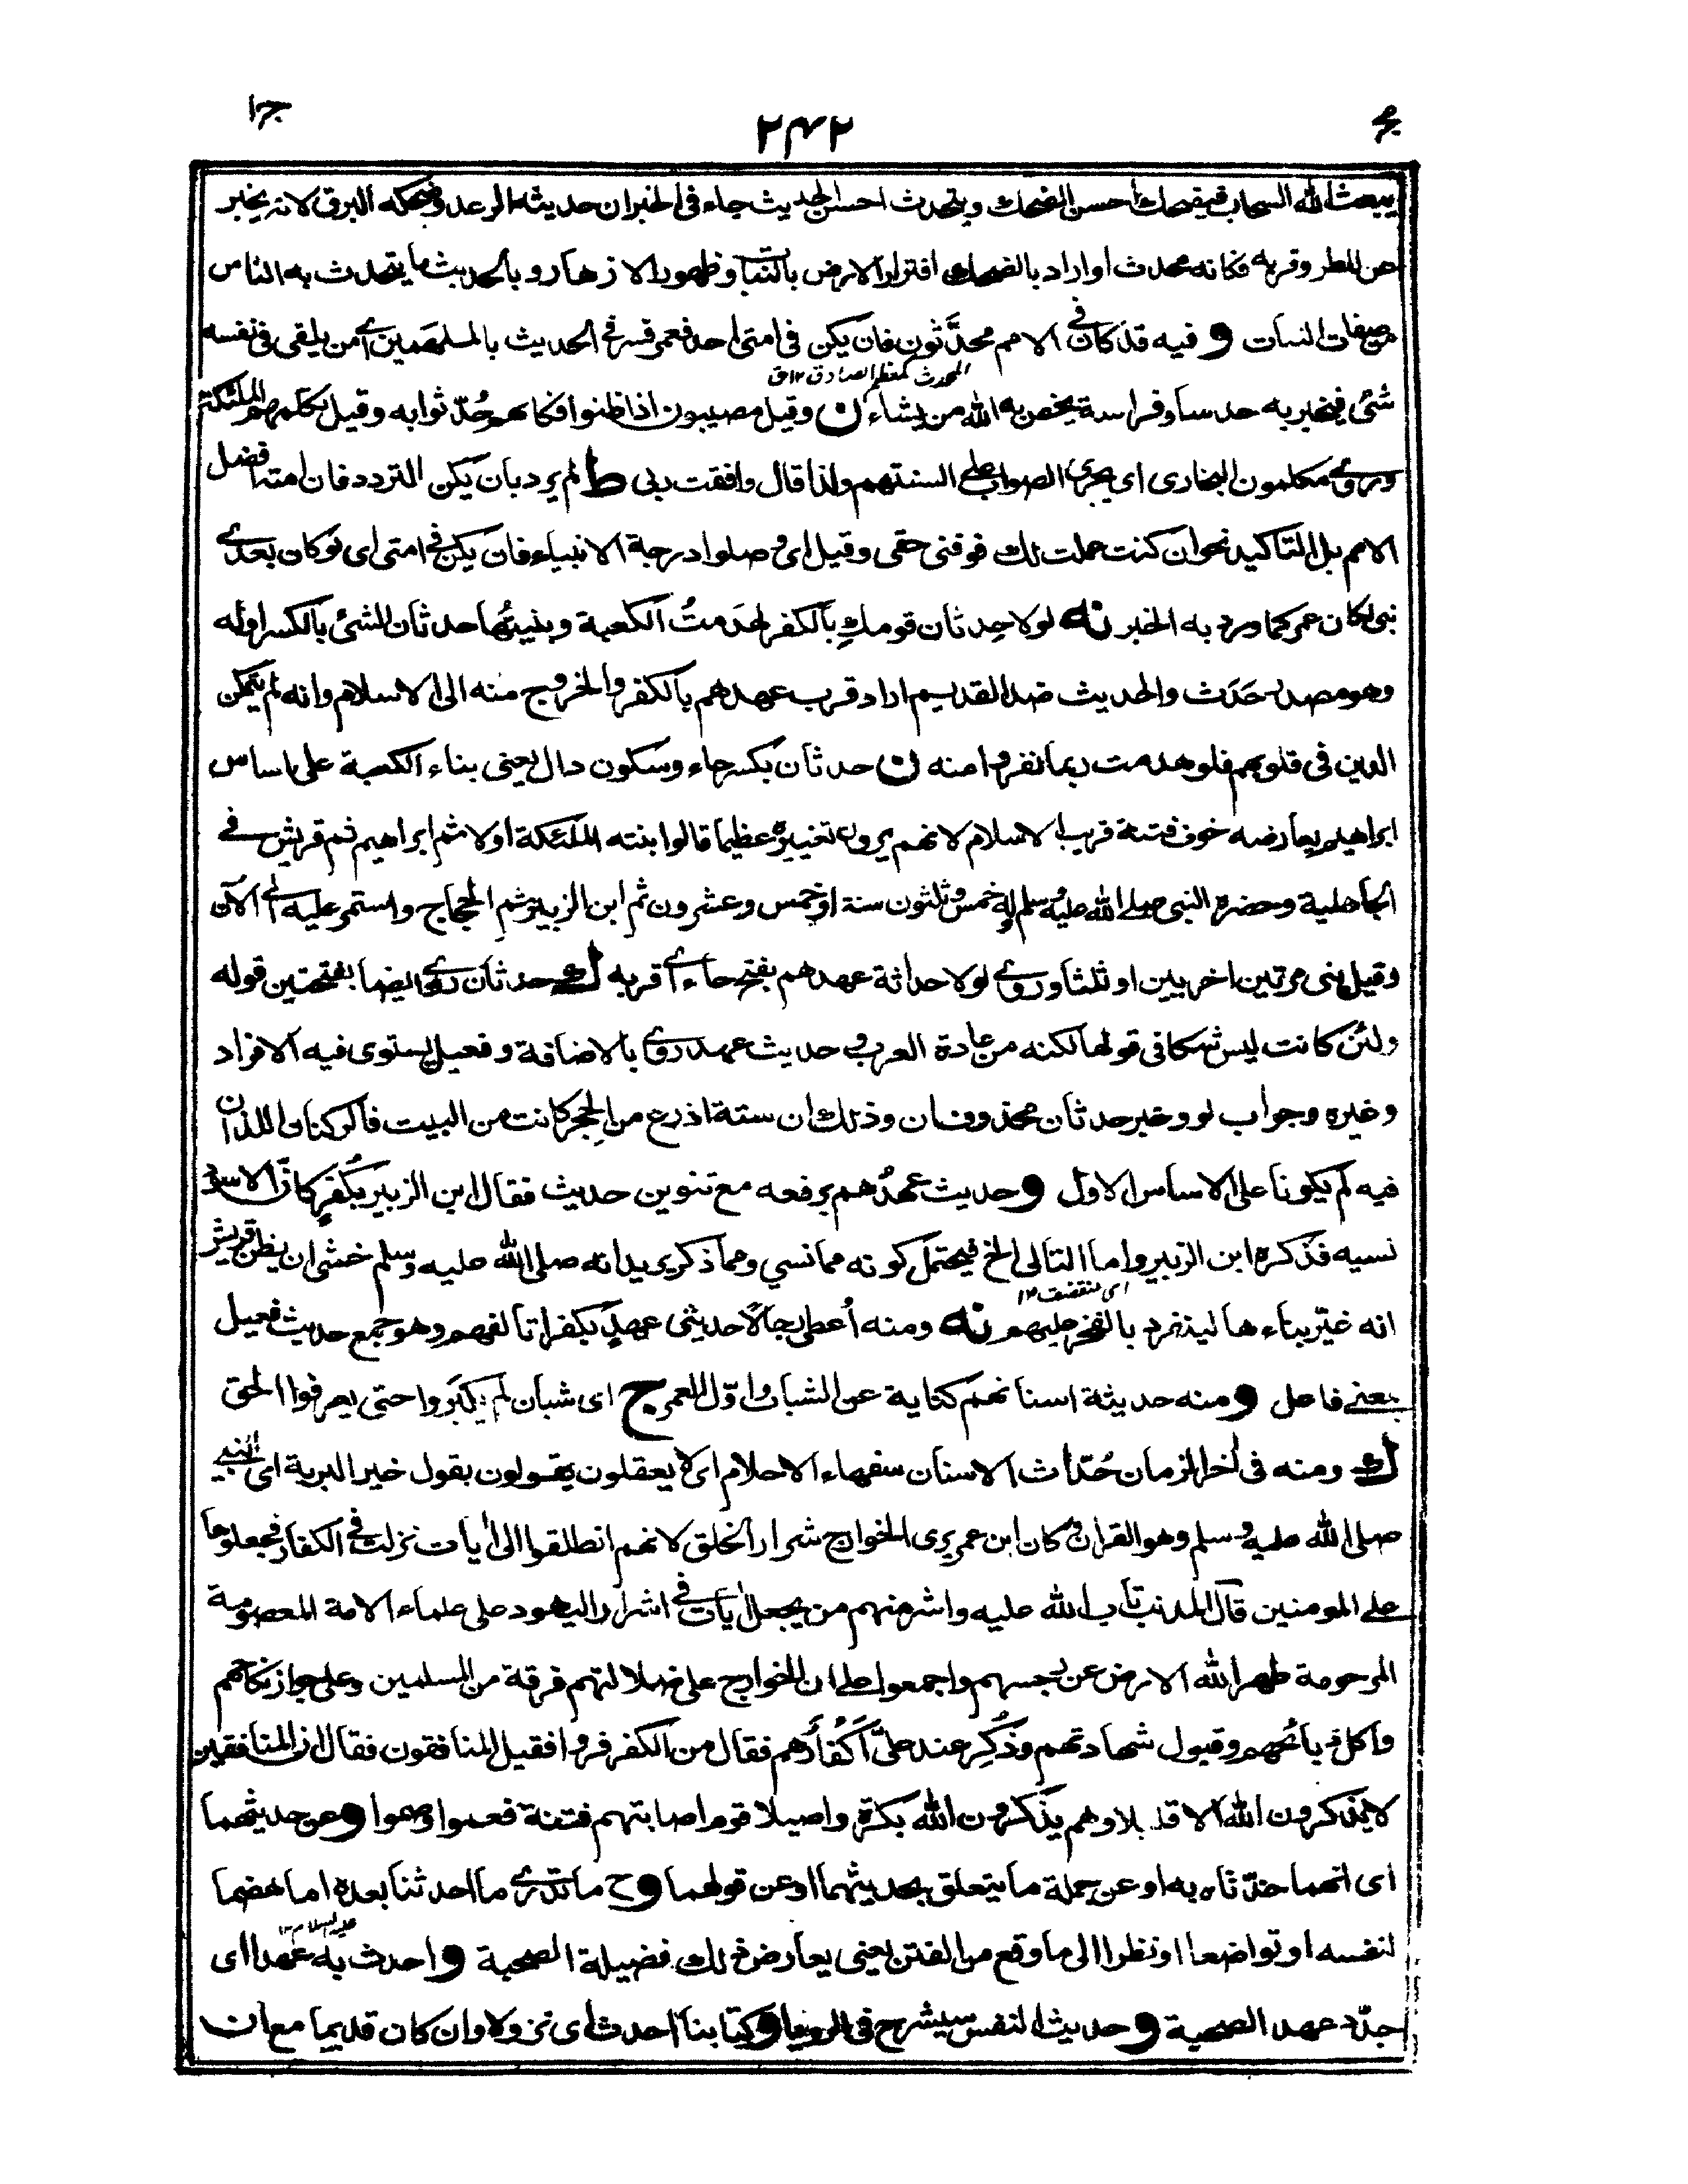 جد
٢٤٢
ج١
يبعث الله السحاب فيضحك احسن الضحك ويتحدث احسن الحديث جاء فى الخبر ان حديثه الرعد وضحكه البرق لانه يخبر
عن المطر وقربه فكانه محدث او اراد بالضحك افترار الارض بالنبات وظهور الازهار وبالحديث ما يتحدث به الناس
من صفات النبات و فيه قد كان فى الامم محدَّثون فان يكن فى امتى احد فعمر فسر فى الحديث بالملهَمين اى من يلقى فى نفسه
المحدث كمعظم الصادق ١٢ ق
شئ فيخبر به حدسا وفراسة يخص به الله من يشاء ن وقيل مصيبون اذا ظنوا فكانهم حُدّثوا به وقيل يكلمهم الملئكة
وروى مكلمون البخارى اى يجرى الصواب على السنتهم ولذا قال وافقت ربى ط لم يرد بان يكن التردد فان امته افضل
الامم بل التاكيد نحو ان كنت عملت لك فوفنى حقى وقيل اى وصلوا درجة الانبياء فان يكن فى امتى اى لو كان بعدى
نبى لكان عمر كما ورد به الخبر نه لولا حِدثان قومكِ بالكفر لهدمتُ الكعبة وبنيتُها حدثان الشئ بالكسر اوله
وهو مصدر حَدَث والحديث ضد القديم اراد قرب عهدهم بالكفر والخروج منه الى الاسلام وانه لم يتمكن
الدين فى قلوبهم فلو هدمت ربما نفروا منه ن حدثان بكسر حاء وسكون دال يعنى بناء الكعبة على اساس
ابراهيم يعارضه خوف فتنة قريب الاسلام لانهم يرون تغييره عظيما قالوا بنته الملئكة اولا ثم ابراهيم ثم قريش فى
الجاهلية وحضره النبى صلى الله عليه وسلم وله خمس وثلثون سنة او خمس وعشرون ثم ابن الزبير ثم الحجاج واستمر عليه الى الآن
وقيل بنى مرتين اخريين او ثلثا وروى لولا حداثة عهدهم بفتح حاء اى قربه ك حدثان روى ايضا بفتحتين قوله
ولئن كانت ليس شكا فى قولها لكنه من عادة العرب و حديث عهد روى بالاضافة وفعيل يستوى فيه الافراد
وغيره وجواب لو وخبر حدثان محذوفان وذلك ان ستة اذرع من الحِجر كانت من البيت فالركنان اللذان
فيه لم يكونا على الاساس الاول و حديث عهدُهم برفعه مع تنوين حديث فقال ابن الزبير بكُفرٍ كانّ الاسود
نسيه فذكره ابن الزبير واما التالى الخ فيحتمل كونه مما نسي ومما ذكر يريد انه صلى الله عليه وسلم خشى ان يظن قريش
اى منقضت ١٢
انه غيّر بناءها لينفرد بالفخر عليهم نه ومنه اُعطى رجالًا حديثى عهدٍ بكفر اتألفهم وهو جمع حديث فعيل
بمعنى فاعل و منه حديثة اسنانهم كناية عن الشباب واوّل العمر ج اى شبان لم يكبَروا حتى يعرفوا الحق
ك ومنه فى آخر الزمان حُدّاث الاسنان سفهاء الاحلام اى لا يعقلون يقولون بقول خير البرية اى النبى
صلى الله عليه وسلم وهو القران و كان ابن عمر يرى الخوارج شرار الخلق لانهم انطلقوا الى آيات نزلت فى الكفار فجعلوها
على المومنين قال المذنب تاب الله عليه واشر منهم من يجعل آيات فى اشرار اليهود على علماء الامة المعصومة
المرحومة طهر الله الارض عن رجسهم واجمعوا على ان الخوارج على ضلالتهم فرقة من المسلمين وعلى جواز نكاحهم
واكل ذبائحهم وقبول شهادتهم وذُكِر عند علىّ اَكُفارُهم فقال من الكفر فروا فقيل المنافقون فقال ان المنافقين
لا يذكرون الله الا قليلا وهم يذكرون الله بكرة واصيلا قوم اصابتهم فتنة فعموا وصموا و عن حديثهما
اى انهما حدّثاه به او عن جملة ما يتعلق بحديثهما او عن قولهما و ح ما تدرى ما احدثنا بعده اما هضما
عليه السلام ١٢
لنفسه او تواضعا او نظرا الى ما وقع من الفتن يعنى يعارض ذلك فضيلة الصحبة و احدث به عهدا اى
جدّد عهد الصحبة و حديث النفس سيشرح فى الرويا و كتابنا احدث اى نزولا وان كان قديما مع ان